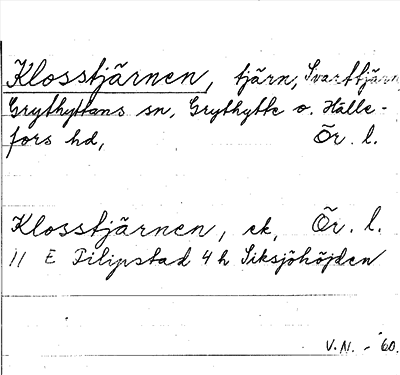 Klosstjärnen, tjärn, Svarttjärn
Grythyttans sn, Grythytte o. Hälle-
fors hd, Ör. l.
Klosstjärnen, ek, Ör. l.
11 E Filipstad 4 h Siksjöhöjden
V.N. - 60.